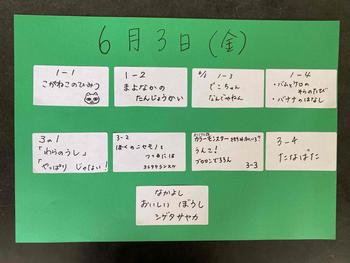 6月3日(金)
1-1
こがねこのひみつ
1-2
まよなかの
たんじょうかい
1-3
でこちゃん
なんじゃもんじゃ
1-4
・バムとケロの
そらのたび
・バナナのはなし
3の1
「わらのうし」
「やっぱり じゃない!
3-2
ぼくのニセモノを
つくるには
ヨシタケシンスケ
カラーモンスター
うんこ!
3-3
3-4
たなばた
なかよし
おいしい ぼうし
シゲタサヤカ